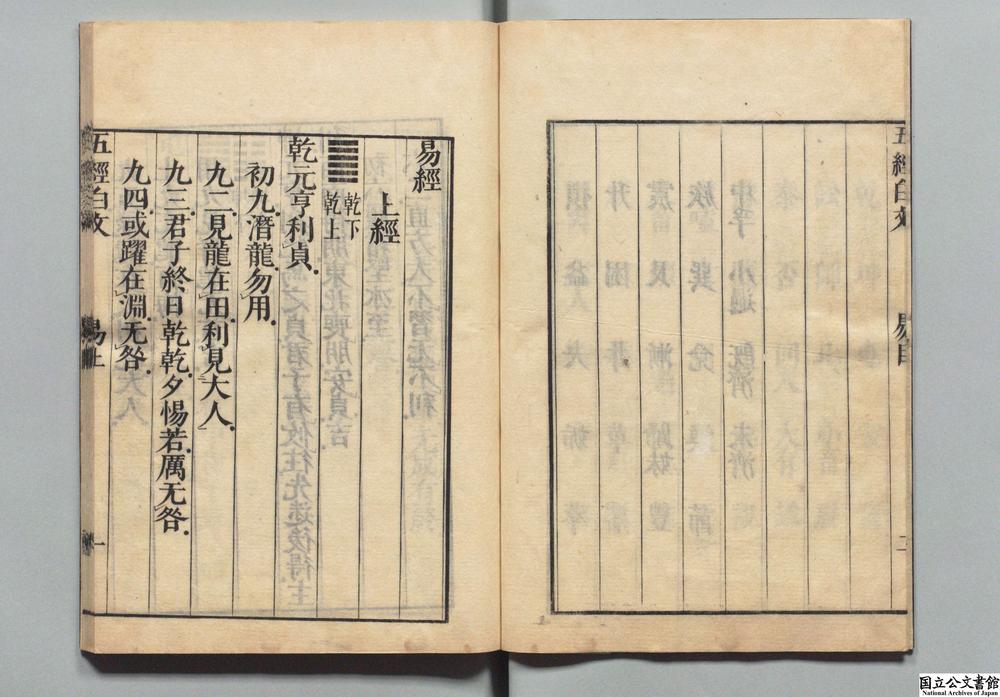 五經白文　易目　二
易經
上經
䷀ 乾下
乾上
乾元亨利貞.
初九.潛龍.勿用.
九二.見龍在田.利見大人.
九三.君子終日乾乾.夕惕若.厲无咎.
九四.或躍在淵.无咎.
五經白文　易上　一
国立公文書館
National Archives of Japan